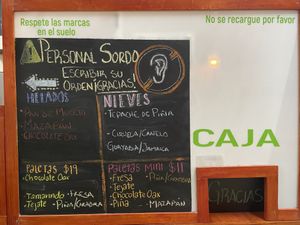 Respete las marcas
en el suelo
No se recargue por favor
PERSONAL SORDO
ESCRIBIR SU
ORDEN ¡GRACIAS!
HELADOS
Pan de Muerto
Mazapán
Chocolate Oax
NIEVES
Tepache de Piña
Ciruela/Canelo
Guayaba/Jamaica
CAJA
Paletas $19
Chocolate Oax
Tamarindo
Fresa
Tejate
Piña/Granadina
Paletas Mini $11
Fresa
Piña/Granadina
Tejate
Chocolate Oax
Piña
Mazapán
GRACIAS